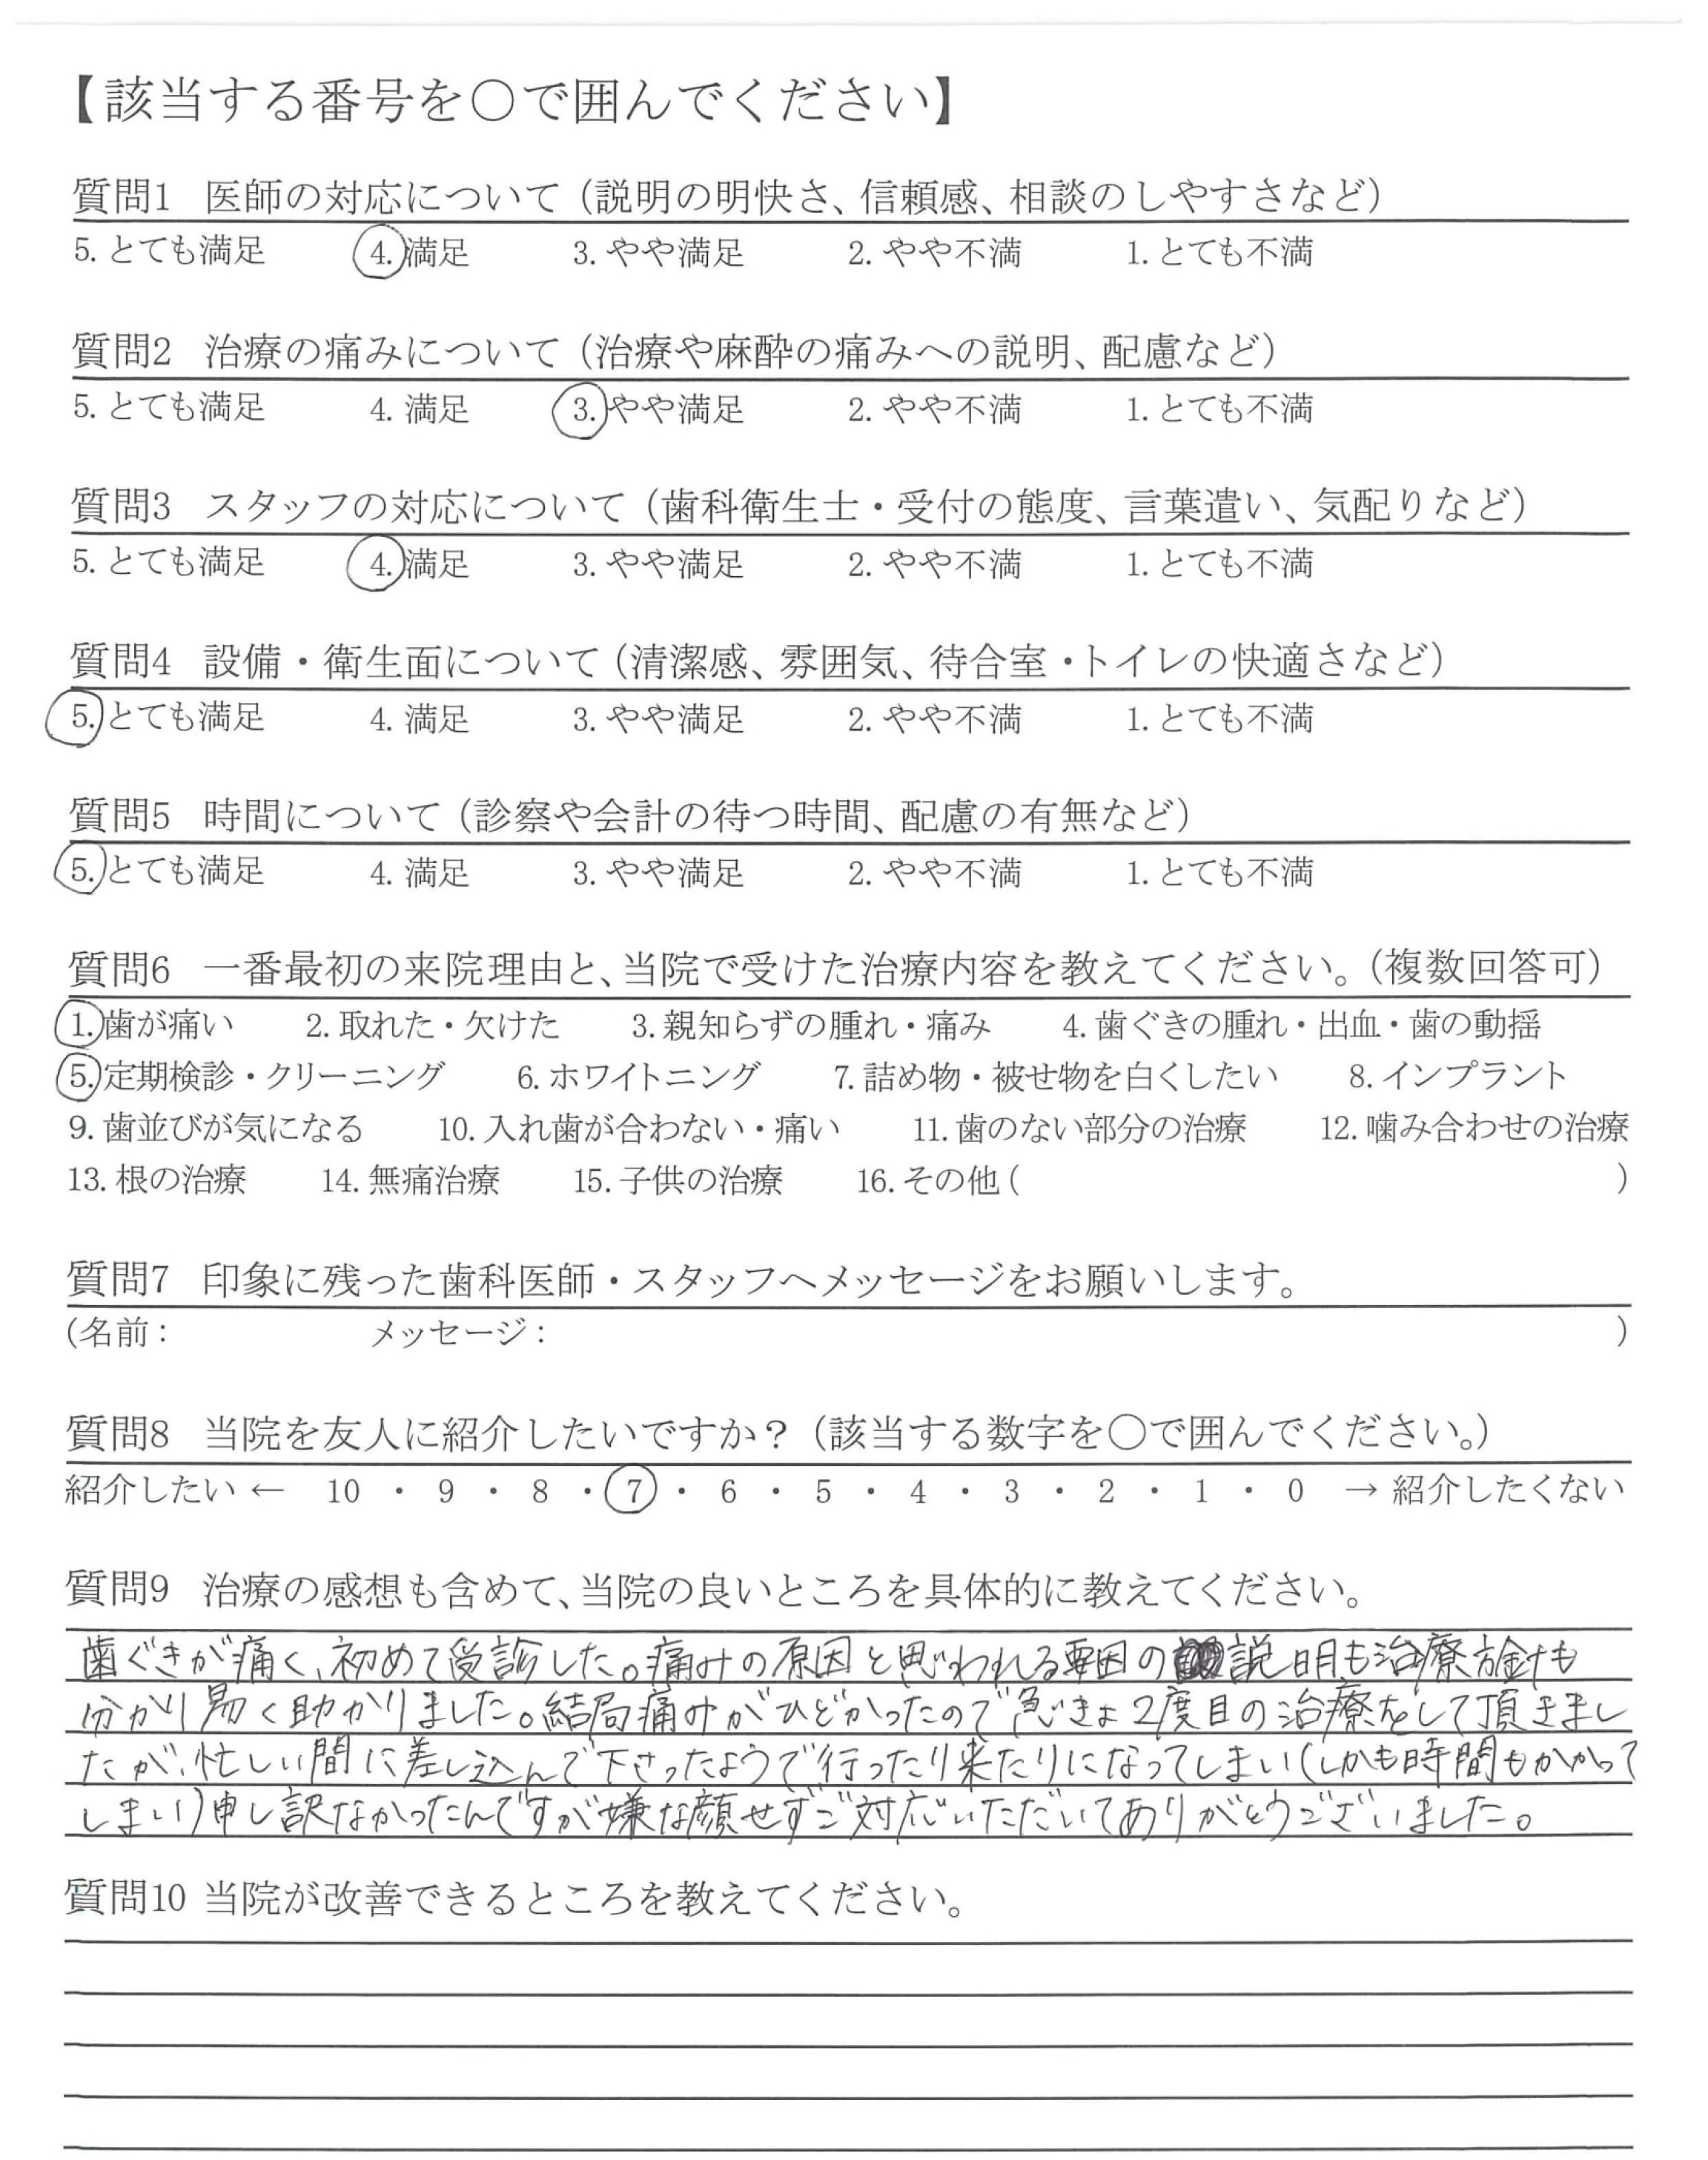 【該当する番号を○で囲んでください】
質問1 医師の対応について（説明の明快さ、信頼感、相談のしやすさなど）
5. とても満足 4. 満足 3. やや満足 2. やや不満 1. とても不満
質問2 治療の痛みについて（治療や麻酔の痛みへの説明、配慮など）
5. とても満足 4. 満足 3. やや満足 2. やや不満 1. とても不満
質問3 スタッフの対応について（歯科衛生士・受付の態度、言葉遣い、気配りなど）
5. とても満足 4. 満足 3. やや満足 2. やや不満 1. とても不満
質問4 設備・衛生面について（清潔感、雰囲気、待合室・トイレの快適さなど）
5. とても満足 4. 満足 3. やや満足 2. やや不満 1. とても不満
質問5 時間について（診察や会計の待つ時間、配慮の有無など）
5. とても満足 4. 満足 3. やや満足 2. やや不満 1. とても不満
質問6 一番最初の来院理由と、当院で受けた治療内容を教えてください。（複数回答可）
1. 歯が痛い 2. 取れた・欠けた 3. 親知らずの腫れ・痛み 4. 歯ぐきの腫れ・出血・歯の動揺
5. 定期検診・クリーニング 6. ホワイトニング 7. 詰め物・被せ物を白くしたい 8. インプラント
9. 歯並びが気になる 10. 入れ歯が合わない・痛い 11. 歯のない部分の治療 12. 噛み合わせの治療
13. 根の治療 14. 無痛治療 15. 子供の治療 16. その他 ( )
質問7 印象に残った歯科医師・スタッフへメッセージをお願いします。
(名前： メッセージ： )
質問8 当院を友人に紹介したいですか？（該当する数字を○で囲んでください。）
紹介したい ← 10 ・ 9 ・ 8 ・ 7 ・ 6 ・ 5 ・ 4 ・ 3 ・ 2 ・ 1 ・ 0 → 紹介したくない
質問9 治療の感想も含めて、当院の良いところを具体的に教えてください。
歯ぐきが痛く、初めて受診した。痛みの原因と思われる要因の説明も治療方針も
分かり易く助かりました。結局痛みがひどかったので急きょ2度目の治療をして頂きまし
たが、忙しい間に差し込んで下さったようで行ったり来たりになってしまい(しかも時間もかかって
しまい)申し訳なかったんですが嫌な顔せずご対応いただいてありがとうございました。
質問10 当院が改善できるところを教えてください。